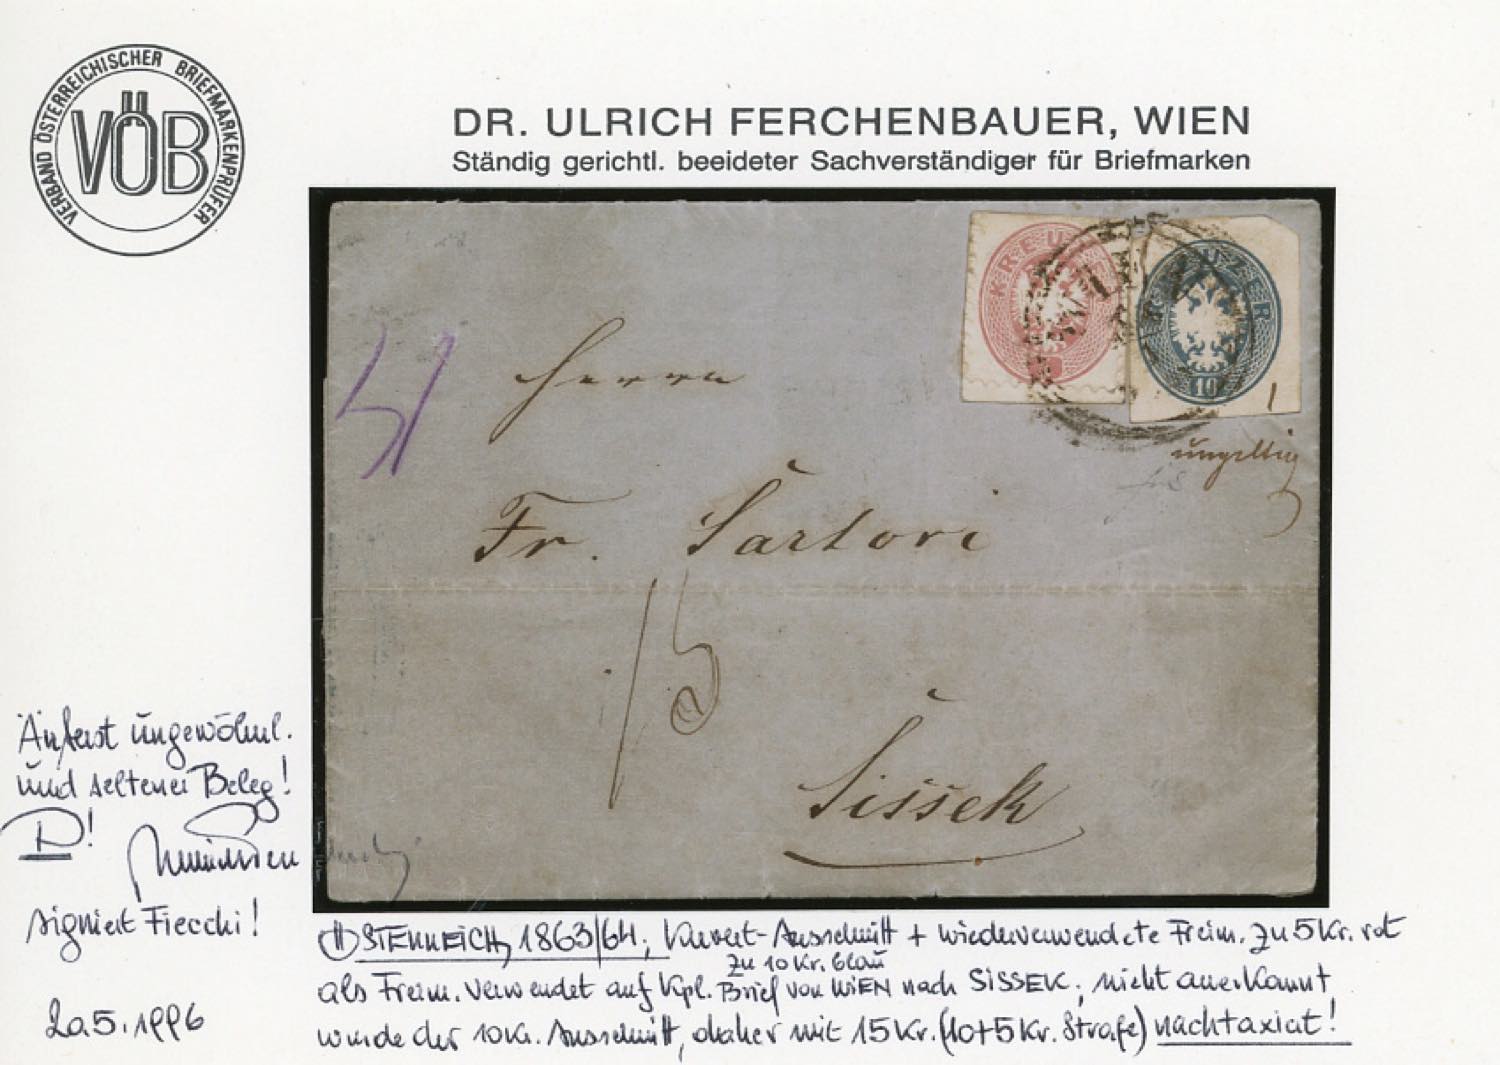 VERBAND ÖSTERREICHISCHER BRIEFMARKENPRÜFER
VÖB
DR. ULRICH FERCHENBAUER, WIEN
Ständig gerichtl. beeideter Sachverständiger für Briefmarken
KREU
UZER
10
WIEN
ungiltig
Herrn
Fr. Sartori
15
Sissek
Äußerst ungewöhnl.
und seltener Beleg!
signiert Fiecchi!
20.5.1996
ÖSTERREICH, 1863/64; Kuvert-Ausschnitt + wiederverwendete Freim. zu 5Kr. rot
zu 10 Kr. blau
als Freim. verwendet auf kpl. Brief von WIEN nach SISSEK, nicht anerkannt
wurde der 10Kr. Ausschnitt, daher mit 15Kr. (10+5Kr. Strafe) nachtaxiert!